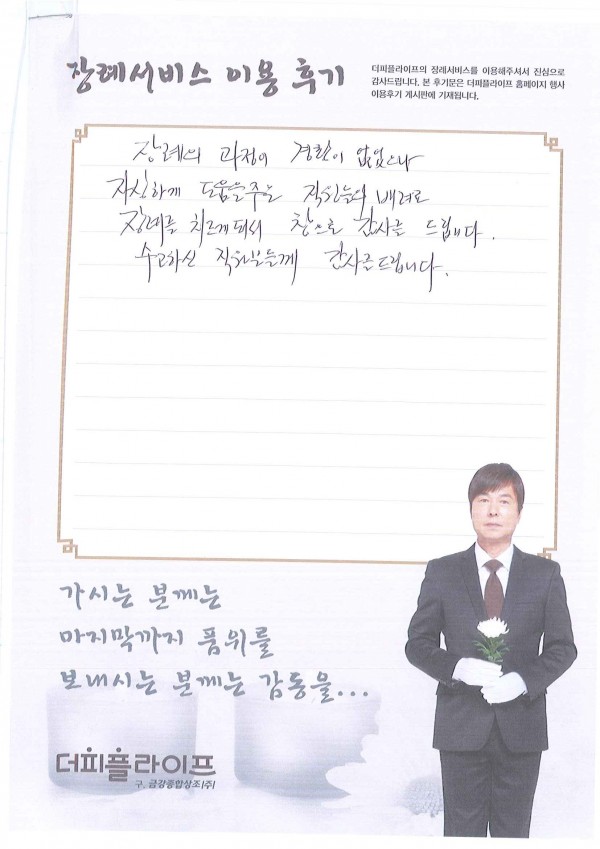 장례서비스 이용 후기
더피플라이프의 장례서비스를 이용해주셔서 진심으로
감사드립니다. 본 후기문은 더피플라이프 홈페이지 행사
이용후기 게시판에 기재됩니다.
장례의 과정이 경황이 없었으나
자신하게 도움을주는 직원들의 배려로
장례를 치르게되서 참으로 감사를 드립니다.
수고하신 직원분들께 감사를드립니다.
가시는 분께는
마지막까지 품위를
보내시는 분께는 감동을...
더피플라이프
구. 금강종합상조(주)